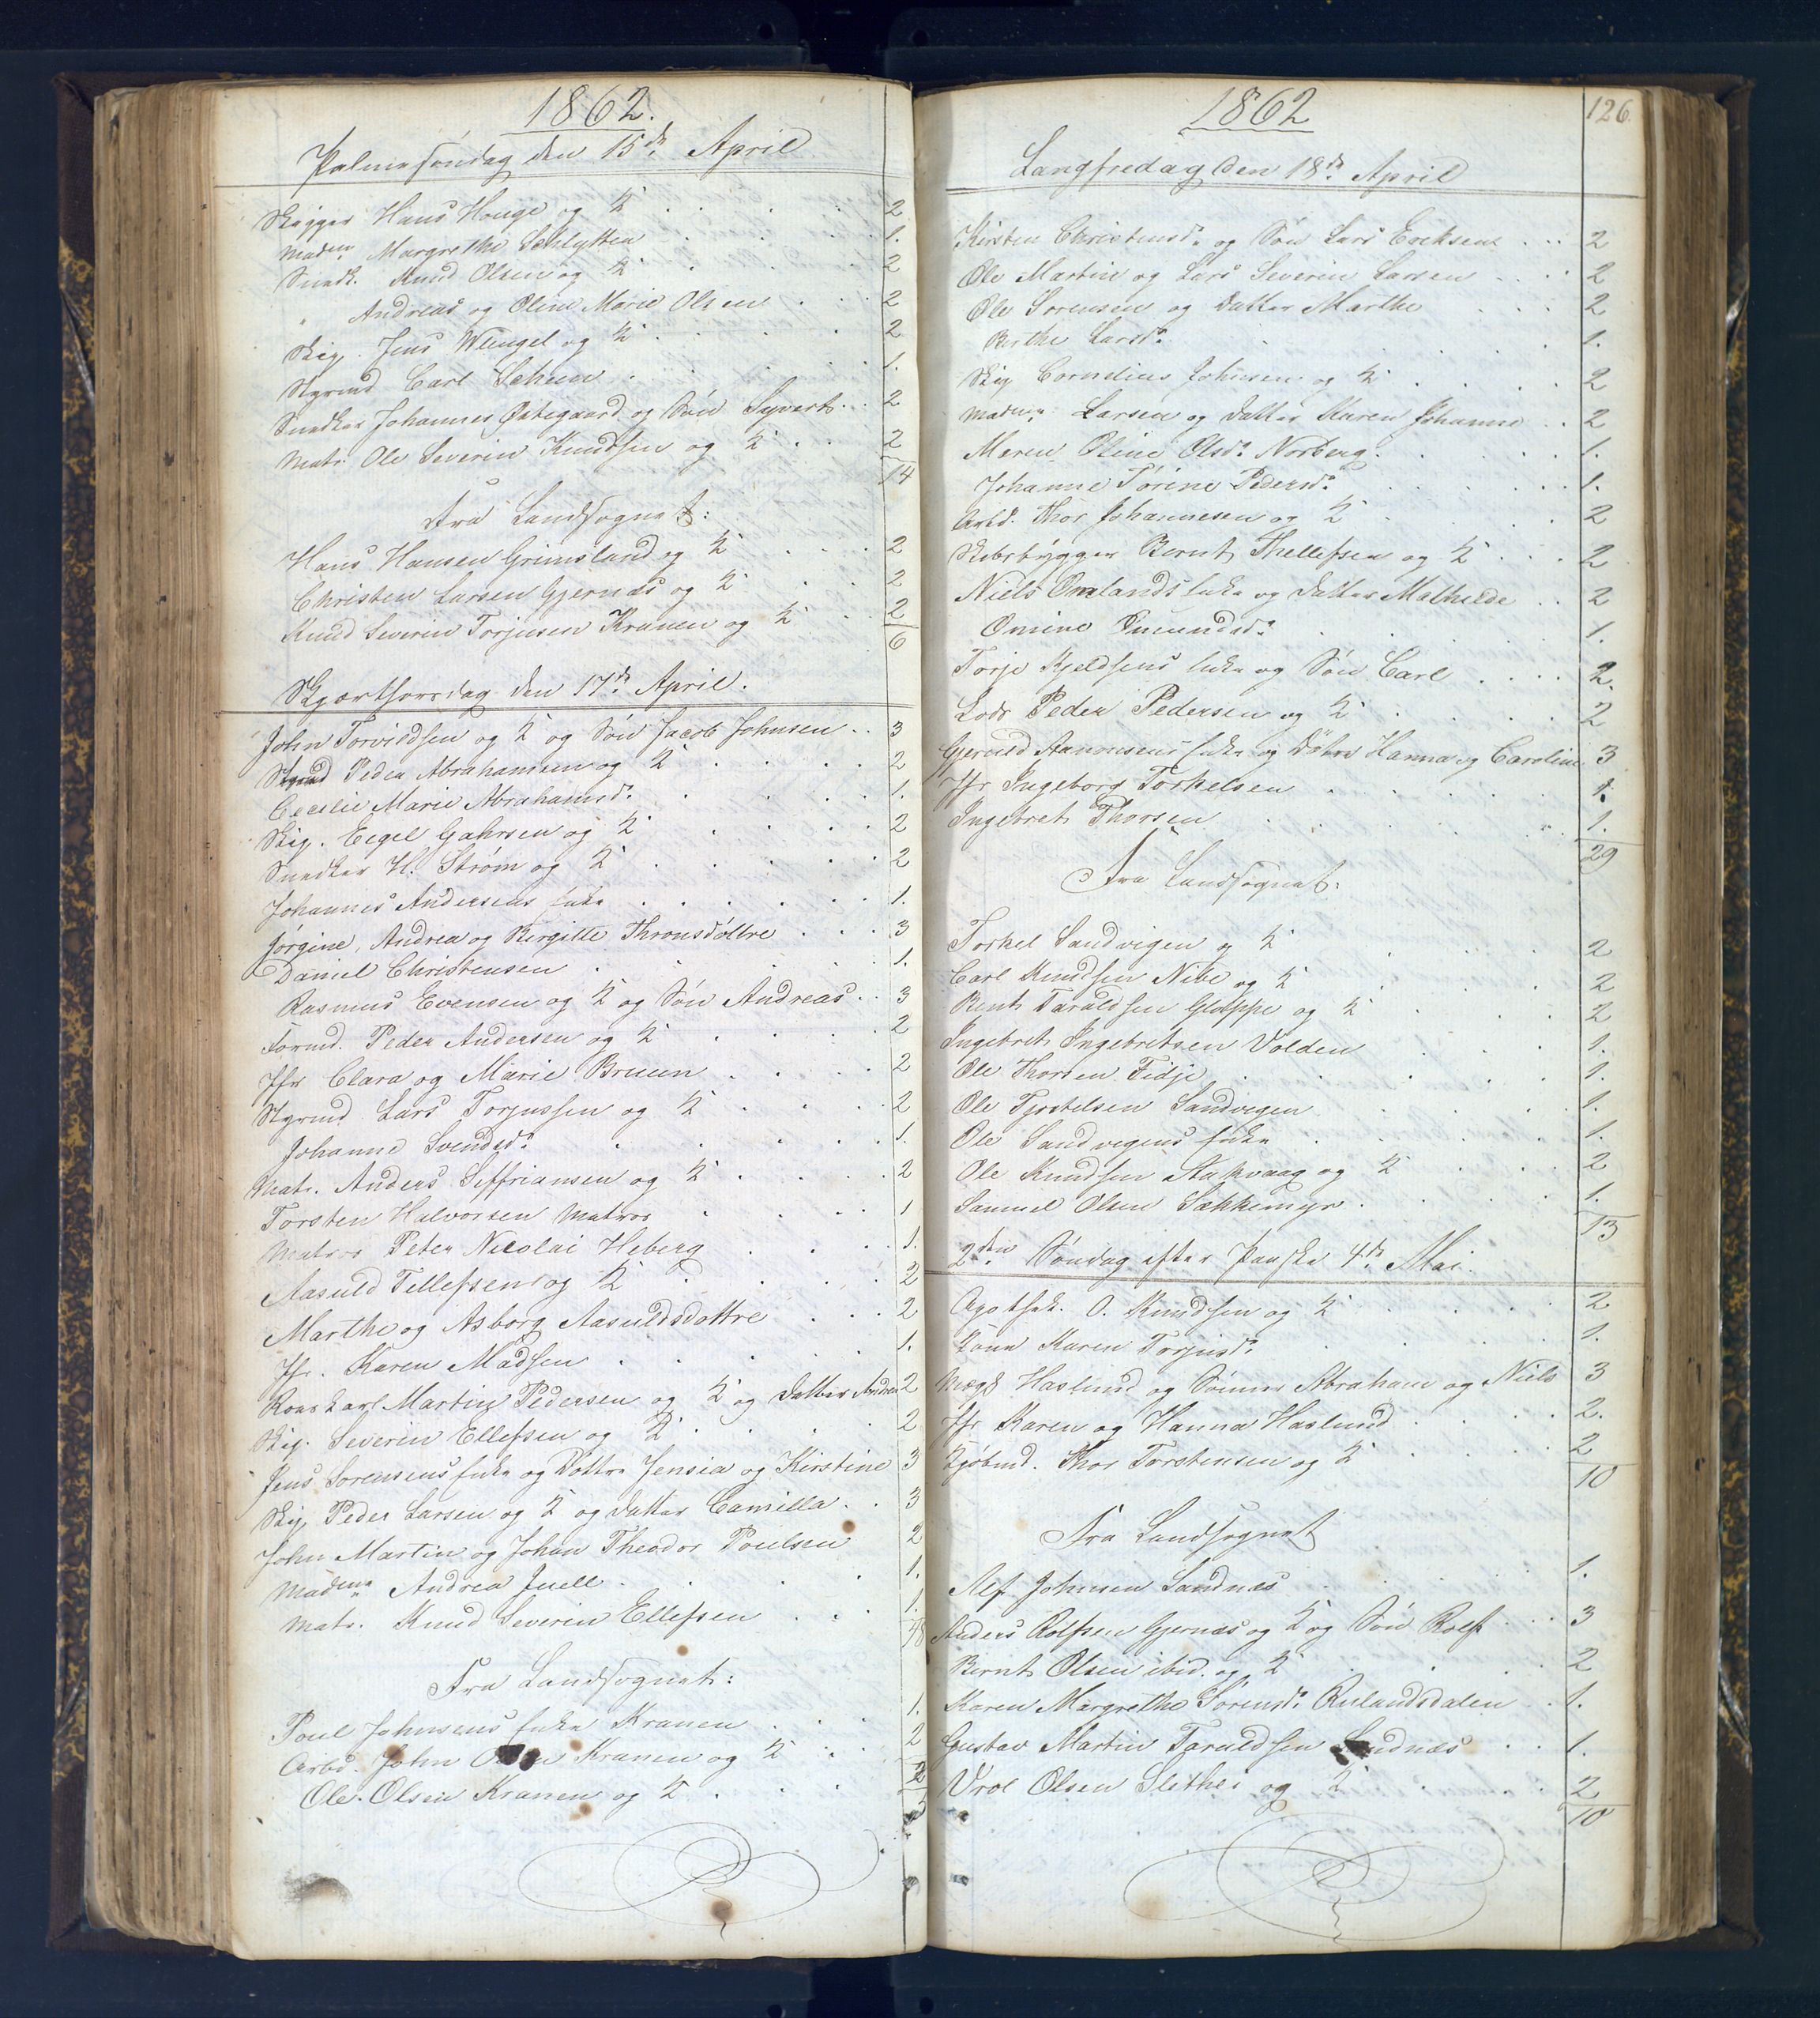 1862.
Palmesøndag den 15de April
Skipper Hans Houge og K 2
Madm. Margrethe Schlytter 1.
Snedk. Knud Olsen og K 2
" Andreas og Oline Marie Olsen 2
Skip. Jens Wengel og K 2
Styrmd Carl Schun 1.
Snedker Johannes Østegaard og Søn Syvert 2
Matr. Ole Severin Knudsen og K 2
14
Fra Landsognet:
Hans Hansen Grimsland og K 2
Christen Larsen Gjernæs og K 2
Knud Severin Torjusen Kranen og K 2
6
Skjærthorsdag den 17de April.
John Torvildsen og K og Søn Jacob Johnsen 3
Peder Abrahamsen og K 2
Cecilie Marie Abrahamsd. 1.
Skip. Eegel Gahrsen og K 2
Snedker H. Strøm og K 2
Johannes Andersens Enke 1.
Jørgine, Andrea og Birgitte Thronsdøttre 3
Daniel Christensen 1.
Rasmus Evensen og K og Søn Andreas 3
Formd. Peder Andersen og K 2
Jfr Clara og Marie Bruun 2
Styrmd Lars Torjussen og K 2
Johanne Svendsd. 1.
Matr. Anders Seffriansen og K 2
Torsten Halvorsen Matros 1
Matros Peter Nicolai Heberg 1.
Aasuld Tellefsen og K 2
Marthe og Asborg Aasuldsdøttre 2
Jfr. Karen Madsen 1.
Martin Pedersen og K og Datter Andrea 2
Skip. Severin Ellefsen og K 2
Jens Sørensens Enke og Døttre Jensia og Kirstine 3
Skip. Peder Larsen og K og Datter Camilla 3
John Martin og Johan Theodor Poulsen 2
Madme Andrea Juell 1.
Matr. Knud Severin Ellefsen 1.
48
Fra Landsognet:
Poul Johnsens Enke Kranen 1.
Arbd. John Olsen Kranen og K 2
Ole Olsen Kranen og K 2
1862
126.
Langfredag den 18de April
Kirsten Christensd. og Søn Lars Eriksen 2
Ole Martin og Lars Severin Larsen 2
Ole Sørensen og Datter Marthe 2
Birthe Larsd. 1.
Skip Cornelius Johnsen og K 2
Madme Larsen og Datter Karen Johanne 2
Maren Oline Olsd. Norberg 1.
Johanne Tørine Pedersd. 1.
Arbd. Thor Johannesen og K 2
Skibsbygger Bernt Thellefsen og K 2
Niels Omlands Enke og Datter Mathilde 2
Omine Omundsd. 1.
Torje Kjeldsens Enke og Søn Carl 2.
Lods Peder Pedersen og K 2
Gjeruld Aanonsens Enke og Døtre Hanna og Caroline 3
Jfr Ingeborg Torkelsen 1.
Ingebret Thorsen 1.
29
Fra Landsognet:
Torkel Sandvigen og K 2
Carl Knudsen Nibe og K 2
Bent Taraldsen Gluppe og K 2
Ingebret Ingebretsen Volden 1.
Ole Thorsen Fidje 1.
Ole Tjostelsen Sandvigen 1.
Ole Sandvigens Enke 1.
Ole Knudsen Stakvaag og K 2
Samuel Olsen Sækkemyr 1.
13
2den Søndag efter Paaske 4de Mai.
Apothek. O. Knudsen og K 2
Karen Torjusd. 1.
Mægl Haslund og Sønner Abraham og Niels 3
Jfr Karen og Hanna Haslund 2.
Kjøbmd. Thor Torstensen og K 2
10
Fra Landsognet
Alf Johnsen Sandnæs 1.
Anders Rolfsen Gjernæs og K og Søn Rolf 3
Bernt Olsen ibid. og K 2
Karen Margrethe Sørensd. Rulandsdalen 1.
Gustav Martin Taraldsen Sandnæs 1.
Vrol Olsen Slethei og K 2
10